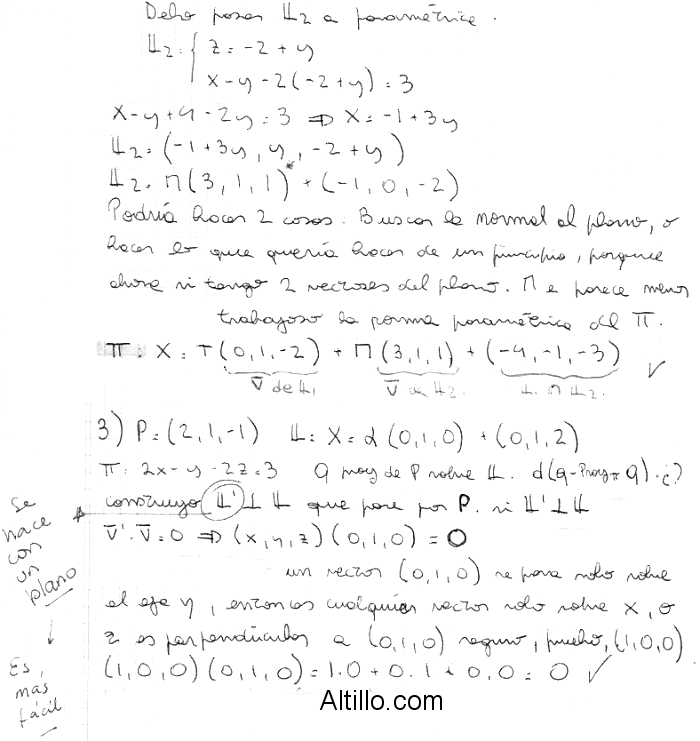 Debo pasar 𝕃2 a paramétrica.
𝕃2: { z = -2 + y
x - y - 2(-2 + y) = 3
x - y + 4 - 2y = 3 ⇒ x = -1 + 3y
𝕃2 = (-1 + 3y, y, -2 + y)
𝕃2 = M(3, 1, 1) + (-1, 0, -2)
Podría hacer 2 cosas. Buscar la normal al plano, o
hacer lo que quería hacer de un principio, porque
ahora si tengo 2 vectores del plano. Me parece menos
trabajoso la forma paramétrica del π.
π: X = T(0, 1, -2) + M(3, 1, 1) + (-4, -1, -3) ✓
V̅ de 𝕃1 V̅ de 𝕃2. 𝕃1 ∩ 𝕃2.
3) P = (2, 1, -1) 𝕃: X = α(0, 1, 0) + (0, 1, 2)
π: 2x - y - 2z = 3 Q proy de P sobre 𝕃. d(Q - Proyπ Q) = ¿?
construyo 𝕃' ⊥ 𝕃 que pase por P. si 𝕃' ⊥ 𝕃
V̅'. V̅ = 0 ⇒ (x, y, z)(0, 1, 0) = 0
un vector (0, 1, 0) se para solo sobre
el eje y, entonces cualquier vector solo sobre x, o
z es perpendicular a (0, 1, 0) seguro, pruebo, (1, 0, 0)
(1, 0, 0)(0, 1, 0) = 1.0 + 0.1 + 0.0 = 0 ✓
Se
hace
con
un
plano
↓
Es,
más
fácil
Altillo.com